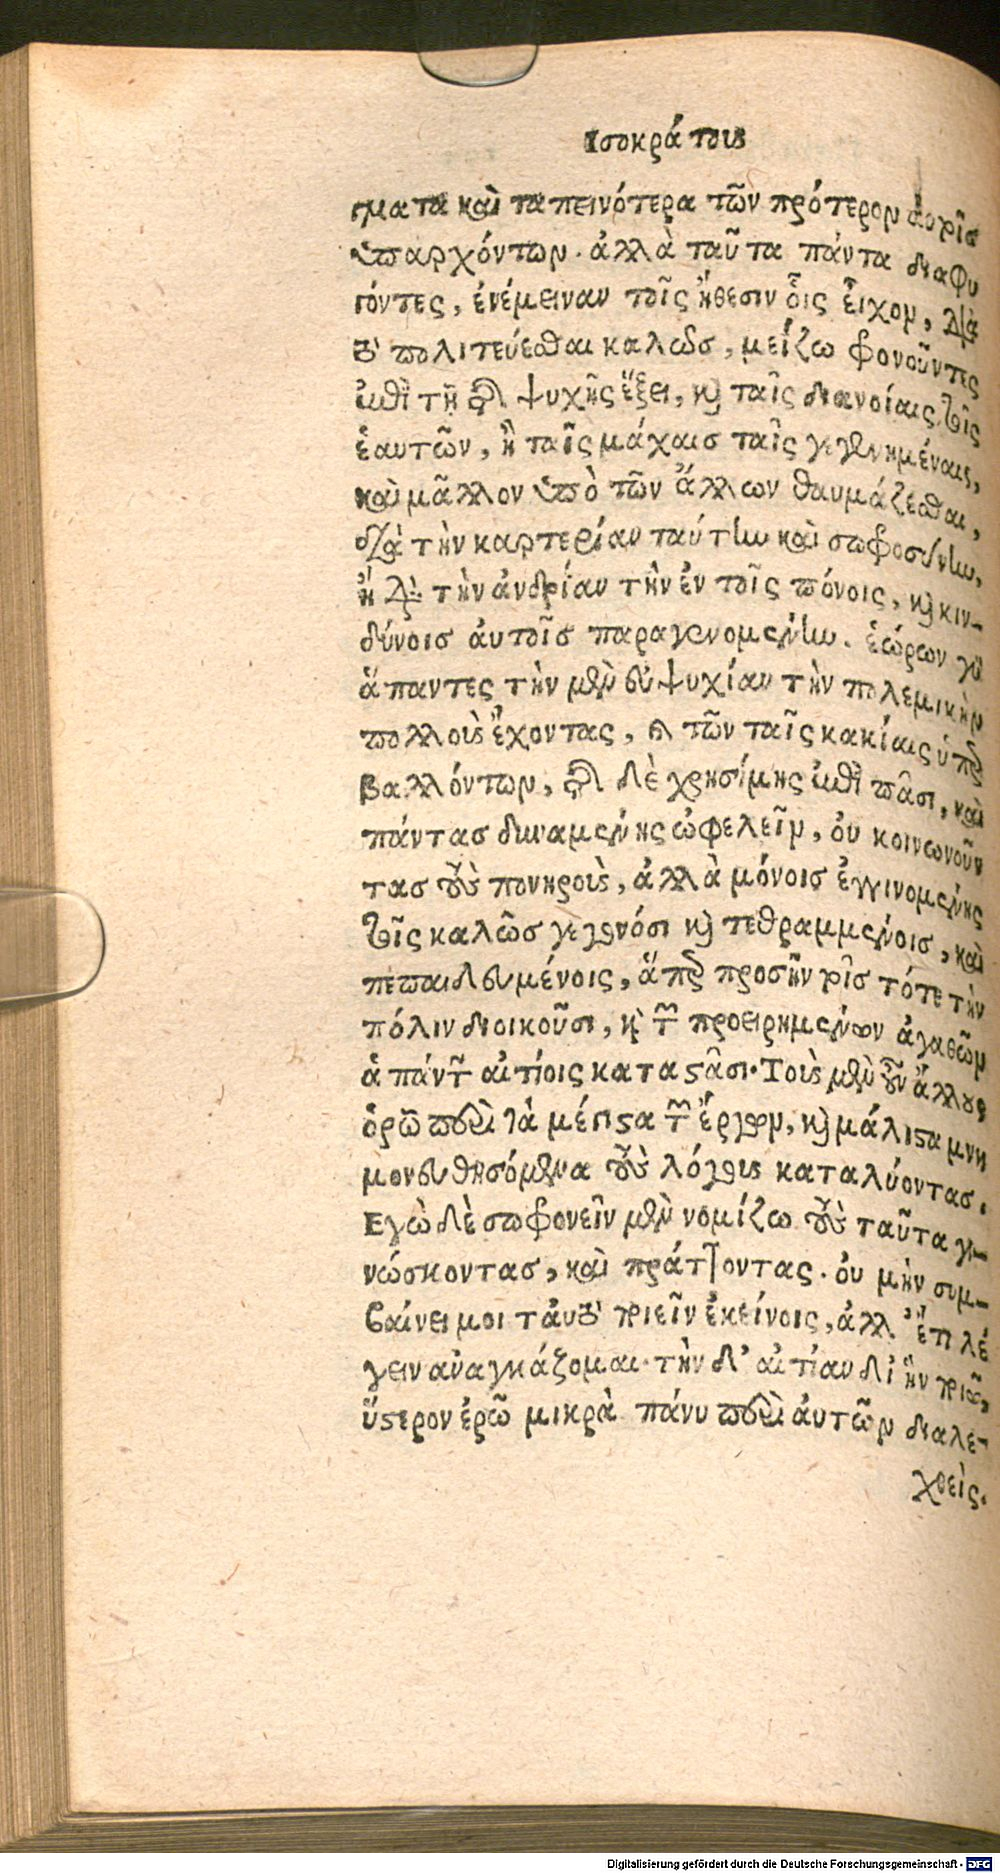 Ισοκράτους
ματα καὶ ταπεινότερα τῶν πρότερον αὐτοῖς
ὑπαρχόντων. ἀλλὰ ταῦτα πάντα διαφυ
γόντες, ἐνέμειναν τοῖς ἤθεσιν οἷς εἶχον, διὰ
τὸ πολιτεύεσθαι καλῶς, μεῖζω φρονοῦντες
ἐπὶ τῇ τῆς ψυχῆς ἕξει, καὶ ταῖς διανοίαις ταῖς
ἑαυτῶν, ἢ ταῖς μάχαις ταῖς γεγενημέναις,
καὶ μᾶλλον ὑπὸ τῶν ἄλλων θαυμάζεσθαι,
διὰ τὴν καρτερίαν ταύτην καὶ σωφροσύνην,
ἢ διὰ τὴν ἀνδρίαν τὴν ἐν τοῖς πόνοις, καὶ κιν-
δύνοις ἀυτοῖς παραγενομένην. ἑώρων γὰρ
ἅπαντες τὴν μὲν εὐψυχίαν τὴν πολεμικὴν
πολλοὺς ἔχοντας, καὶ τῶν ταῖς κακίαις ὑπερ
βαλλόντων, τῆς δὲ χρησίμης ἐπὶ πᾶσι, καὶ
πάντας δυναμένης ὠφελεῖν, ὀυ κοινωνοῦν
τας τοὺς πονηροὺς, ἀλλὰ μόνοις ἐγγινομένης
τοῖς καλῶς γεγονόσι καὶ τεθραμμένοις, καὶ
πεπαιδευμένοις, ἅπερ προσῆν τοῖς τότε τὴν
πόλιν διοικοῦσι, καὶ τῶν προειρημένων ἀγαθῶν
ἁπάντων αἰτίοις καταστᾶσι. Τοὺς μὲν οὖν ἄλλους
ὁρῶ περὶ τὰ μέγιστα τῶν ἔργων, καὶ μάλιστα μνη
μονευθησόμενα τοὺς λόγους καταλύοντας.
Εγὼ δὲ σωφρονεῖν μὲν νομίζω τοὺς ταῦτα γι-
νώσκοντας, καὶ πράττοντας. ὀυ μὴν συμ-
βαίνει μοι τἀυτὸ ποιεῖν ἐκείνοις, ἀλλ' ἔτι λέ
γειν ἀναγκάζομαι. τὴν δ' αἰτίαν δι' ἣν ποιῶ,
ὕστερον ἐρῶ μικρὰ πάνυ περὶ ἀυτῶν διαλε-
χθεὶς.
Digitalisierung gefördert durch die Deutsche Forschungsgemeinschaft - DFG